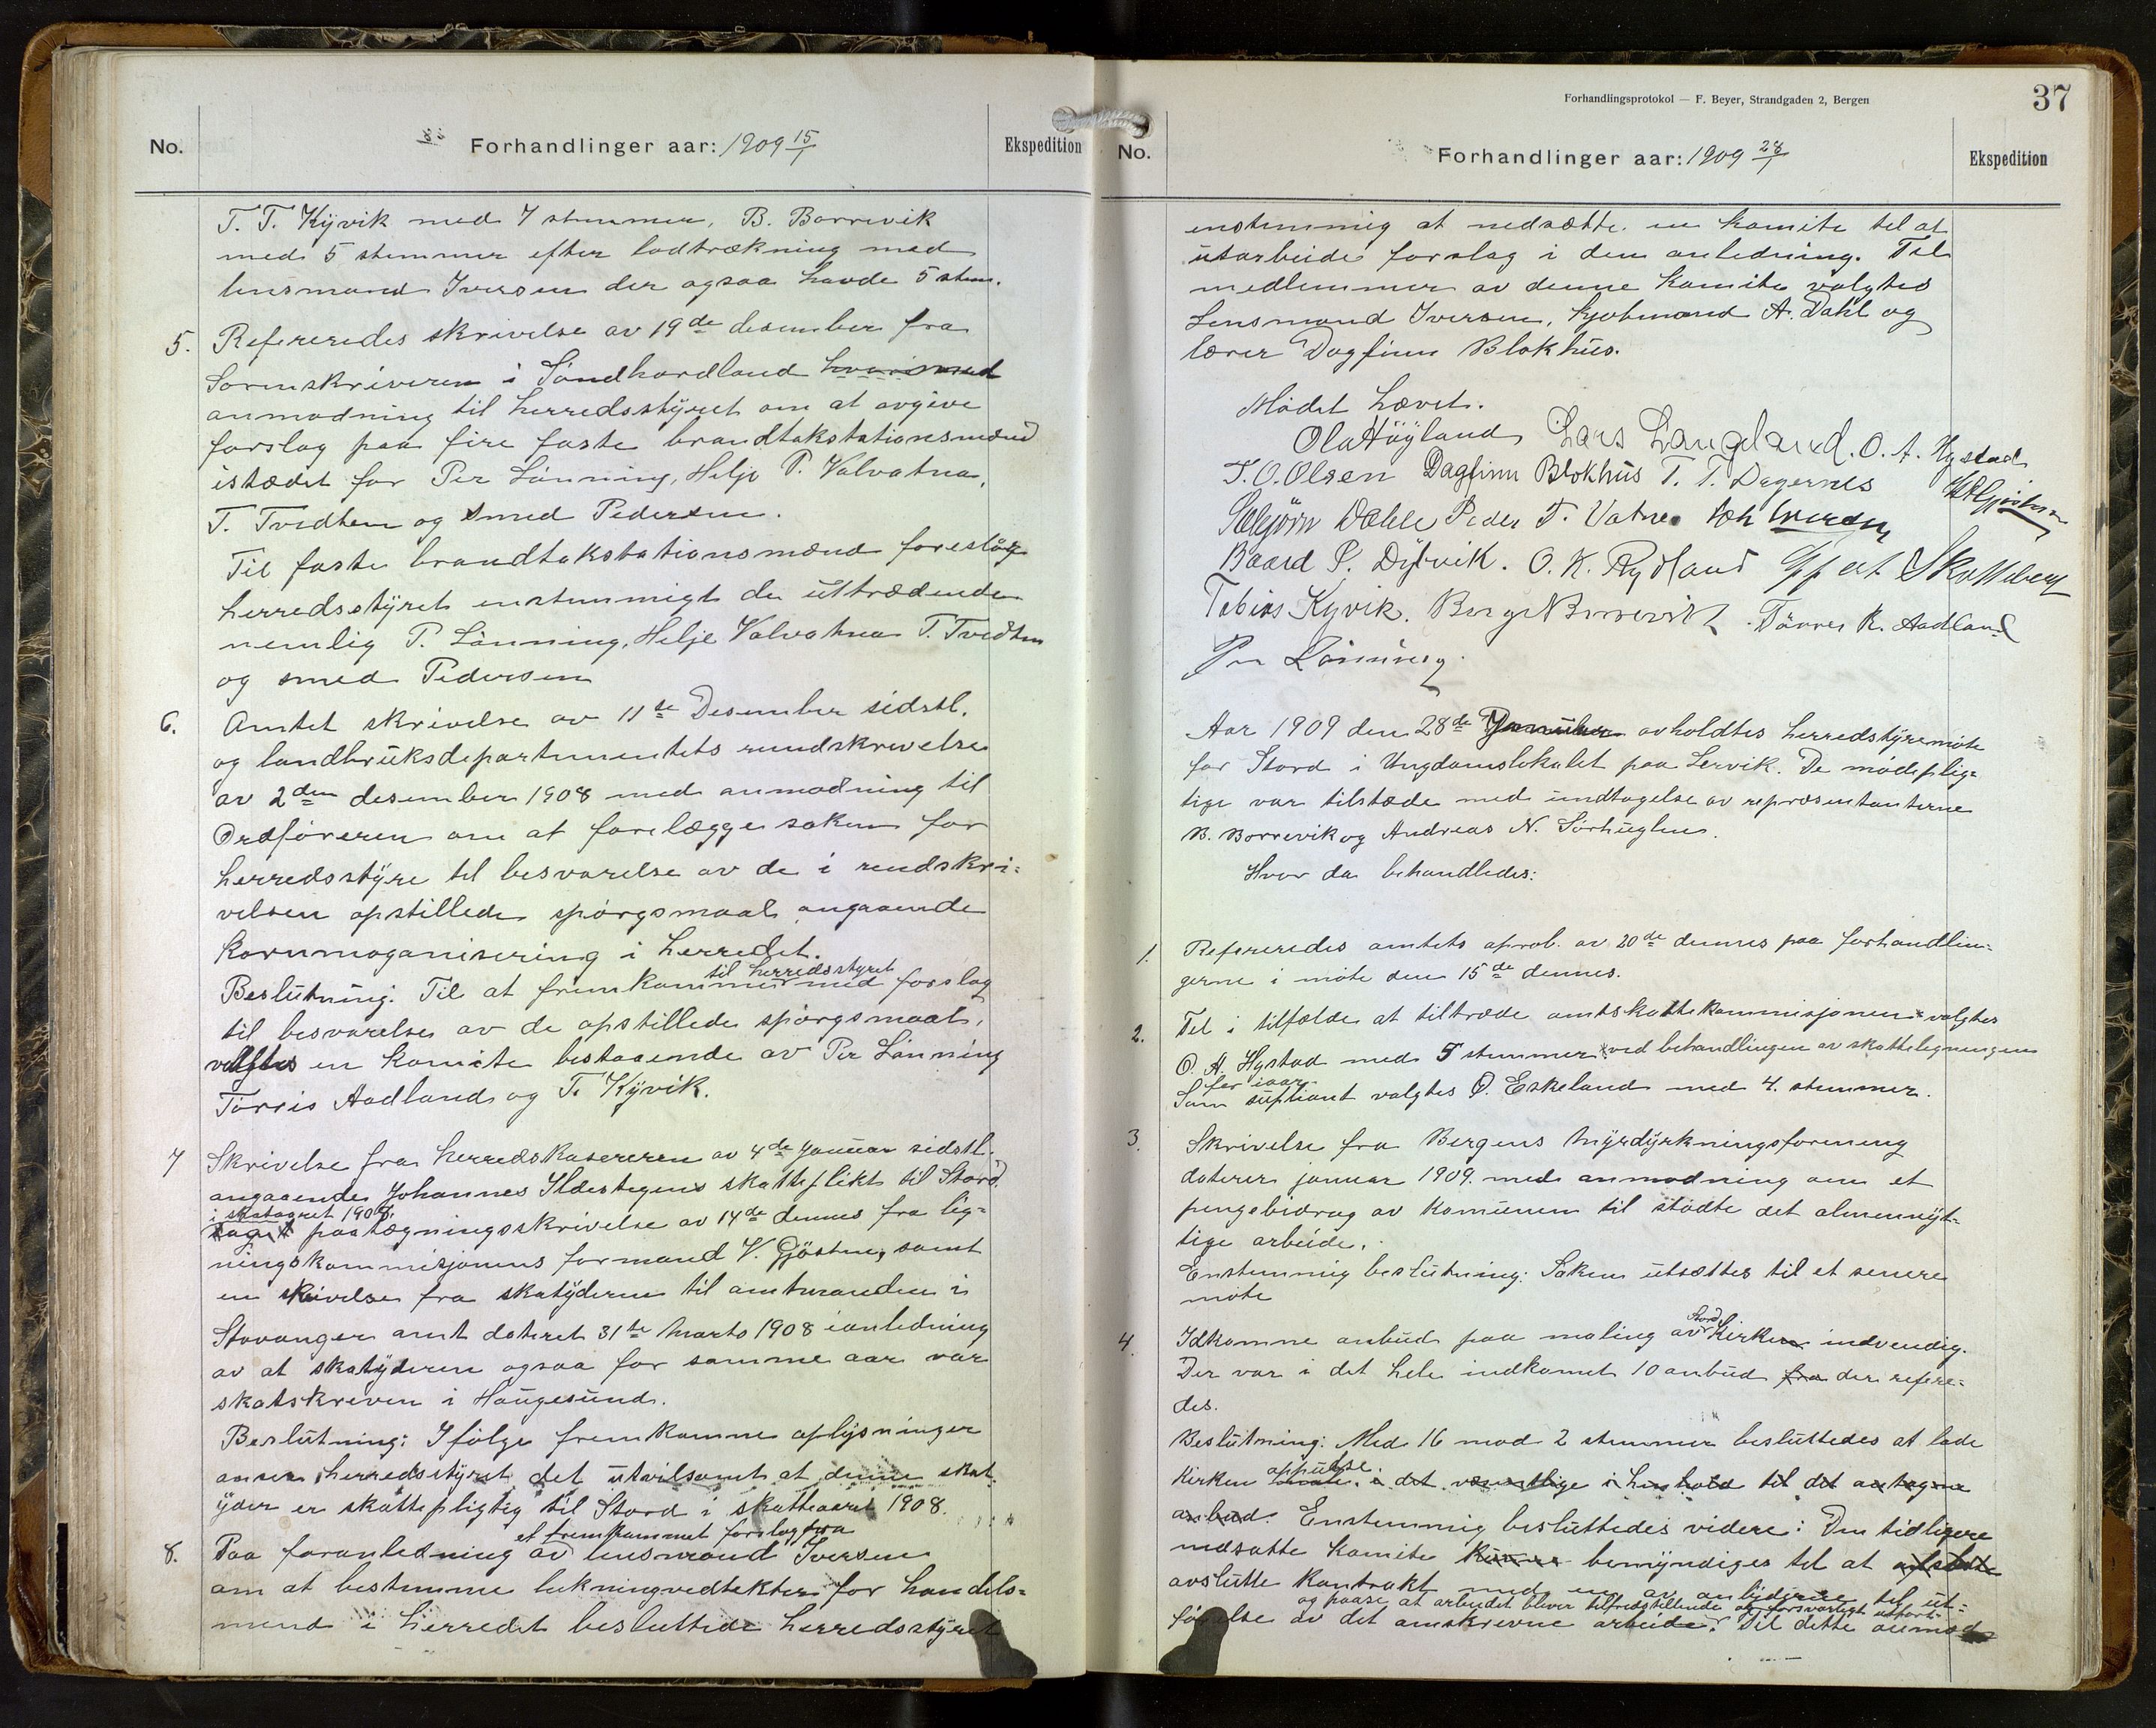 No.
Forhandlinger aar: 1909 15/1
Ekspedition
T. T. Kÿvik med 7 stemmer, B. Borrevik
med 5 stemmer efter lodtrækning med
lensmand Iversen der ogsaa havde 5 stem.
5. Refereredes skrivelse av 19de desember fra
Sorenskriveren i Söndhordland hvori med
anmodning til herredsstÿret om at avgive
forslag paa fire faste brandtakstationsmænd
istædet for Per Lönning, Helje P. Valvatna,
T. Tvedten og Smed Pedersen.
Til faste brandtakstationsmænd foreslog
herredsstÿret enstemmigt de uttrædende
nemlig P. Lönning, Helje Valvatna T. Tvedten
og smed Pedersen
6. Amtet skrivelse av 11te Desember sidstl.
og landbruksdepartementets rundskrivelse
av 2den desember 1908 med anmodning til
Ordföreren om at forelægge saken for
herredsstÿre til besvarelse av de i rundskri=
velsen opstillede spörgsmaal angaaende
kornmaganisering i herredet.
til herredsstyret
Beslutning: Til at fremkomme med forslag
til besvarelse av de opstillede spörgsmaal,
valgtes en komite bestaaende av Per Lönning
Törris Aadland og T. Kÿvik.
7 Skrivelse fra herredskasereren av 4de Januar sidstl.
angaaende Johannes Ildestegens skatteplikt til Stord
i skatagret 1908,
paategningsskrivelse av 14de dennes fra lig=
ningskommisjonens formand V. Gjöstein, samt
en skrivelse fra skatÿderen til amtmanden i
Stavanger amt dateret 31te Marts 1908 i anledning
av at skatÿderen ogsaa for samme aar var
skatskreven i Haugesund.
Beslutning: Ifölge fremkomne oplÿsninger
anser herredsstÿret det utvilsomt at denne skat=
ÿder er skattepligtig til Stord i skatteaaret 1908.
et fremkommet forslag fra
8. Paa foranledning av lensmand Iversen
om at bestemme lukningvedtekter for handels=
mend i herredet besluttede herredsstÿret
Forhandlingsprotokol — F. Beyer, Strandgaden 2, Bergen
37
No.
Forhandlinger aar: 1909 28/1
Ekspedition
enstemmig at nedsætte en komite til at
utarbeide forslag i den anledning. Til
medlemmer av denne komite valgtes
Lensmand Iversen, kjøbmand A. Dahl og
lærer Dagfinn Blokhus.
Mödet hævet.
Ola Höÿland Lars Langeland. O. A. Hystad
T. O. Olsen Dagfinn Blokhus T. T. Dagernes
Sæbjörn Dahle Peder T. Vatne Joh Iversen
Baard P. Dÿbvik. O. K. Rydland
Tobias Kyvik. Berge Borrevik. Törres K. Aadland
Per Lönning.
Aar 1909 den 28de Januar avholdtes herredstÿremöte
for Stord i Ungdomslokalet paa Lervik. De mödeplig=
tige var tilstæde med undtagelse av repræsentanterne
B. Borrevik og Andreas N. Sörhuglen.
Hvor da behandledes:
1. Refereredes amtets aprob. av 20de dennes paa forhandlin=
gerne i möte den 15de dennes.
2. Til i tilfælde at tiltræde amtskattekommisjonen valgtes
O. A. Hystad med 5 stemmer ved behandlingen av skatteligningen
for iaar.
Som supliant valgtes O. Eskeland med 4. stemmer.
3. Skrivelse fra Bergens Mÿrdÿrkningsforening
daterer januar 1909. med anmodning om et
pengebidrag av komunen til stödte det almennÿt=
tige arbeide.
Enstemmig beslutning: Saken utsættes til et senere
möte
Stord
4. Idkomne anbud paa maling av kirken indvendig.
Der var i det hele indkomet 10 anbud fra der refere=
des.
Beslutning: Med 16 mod 2 stemmer besluttedes at lade
oppusse.
Kirken i det væsentlige i henhold til det antagne
anbud. Enstemmig besluttedes videre: Den tidligere
nedsatte komite bemÿndiges til at
avslutte kontrakt med en av anbÿderne til ut=
og paase at arbeidet bliver tilfredstillende og forsvarligt utfört.
förelse av det omskrevne arbeide. Til dette anmod